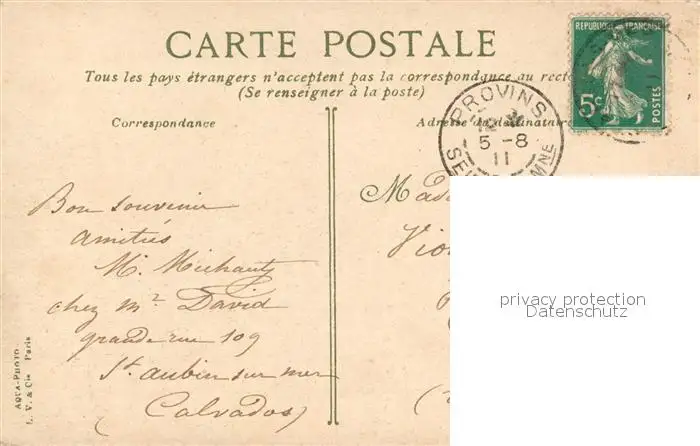 CARTE POSTALE
Tous les pays étrangers n'acceptent pas la correspondance au recto
(Se renseigner à la poste)
Correspondance
Adresse du destinataire
REPUBLIQUE FRANÇAISE
5c
POSTES
PROVINS
5 -8
11
Bon souvenir
amitiés
M. Michautz
chez Mr David
grande rue 109
St. aubin sur mer
(Calvados)
AQUA-PHOTO
L. V. & Cie Paris
privacy protection
Datenschutz